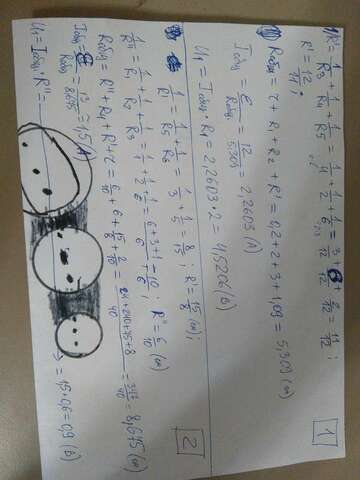 1
1/R' = 1/R3 + 1/R4 + 1/R5 = 1/4 + 1/2 + 1/6 = 3/12 + 6/12 + 2/12 = 11/12 ;
R' = 12/11 ;
Rобщ = r + R1 + R2 + R' = 0,2 + 2 + 3 + 1,09 = 5,309 (ом)
Iобщ = E/Rобщ = 12/5,309 = 2,2603 (А)
U1 = Iобщ · R1 = 2,2603 · 2 = 4,5206 (В)
2
1/R' = 1/R5 + 1/R6 = 1/3 + 1/5 = 8/15 ; R' = 15/8 (ом) ;
1/R'' = 1/R1 + 1/R2 + 1/R3 = 1/1 + 1/2 + 1/6 = 6+3+1/6 = 10/6 ; R'' = 6/10 (ом)
Rобщ = R'' + R4 + R' + r = 6/10 + 6 + 15/8 + 2/10 = 24+240+75+8/40 = 347/40 = 8,675 (ом)
Iобщ = E/Rобщ = 13/8,675 = 1,5 (А)
U1 = Iобщ · R'' = = 1,5 · 0,6 = 0,9 (В)